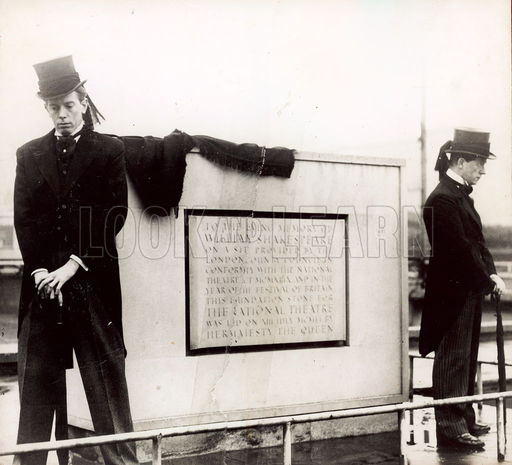 TO THE LIVING MEMORY OF
WILLIAM SHAKESPEARE
ON A SITE PROVIDED BY THE
LONDON COUNTY COUNCIL IN
CONFORMITY WITH THE NATIONAL
THEATRE ACT MCMXLIX AND IN THE
YEAR OF THE FESTIVAL OF BRITAIN
THIS FOUNDATION STONE FOR
THE NATIONAL THEATRE
WAS LAID ON XIII JULY MCMLI BY
HER MAJESTY THE QUEEN
LOOK AND LEARN